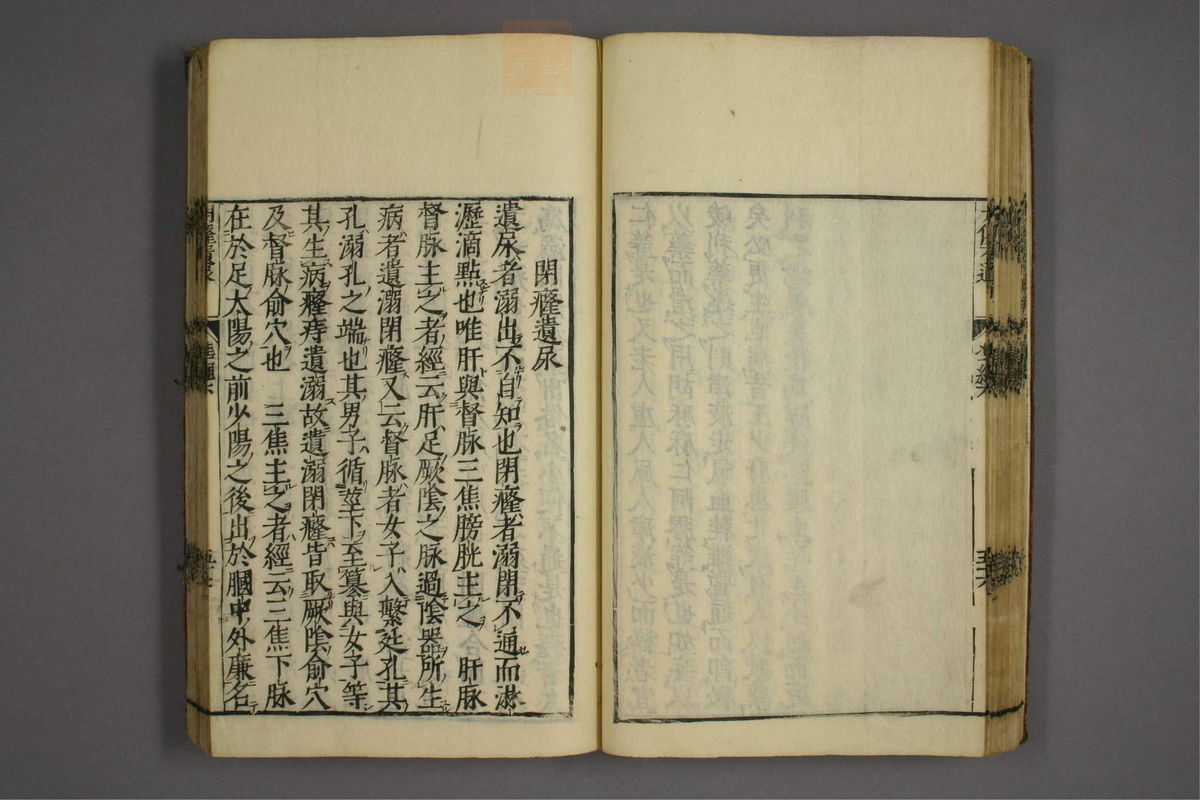 閉癃遺尿
遺尿者溺出不自知也閉癃者溺閉不通而淋
瀝滴點也唯肝與督脉三焦膀胱主之　肝脉
督脉主之者經云肝足厥陰之脉過陰器所生
病者遺溺閉癃又云督脉者女子入繫廷孔其
孔溺孔之端也其男子循莖下至篡與女子等
其生病癃痔遺溺故遺溺閉癃皆取厥陰俞穴
及督脉俞穴也　三焦主之者經云三焦下脉
在於足太陽之前少陽之後出於膕中外廉名